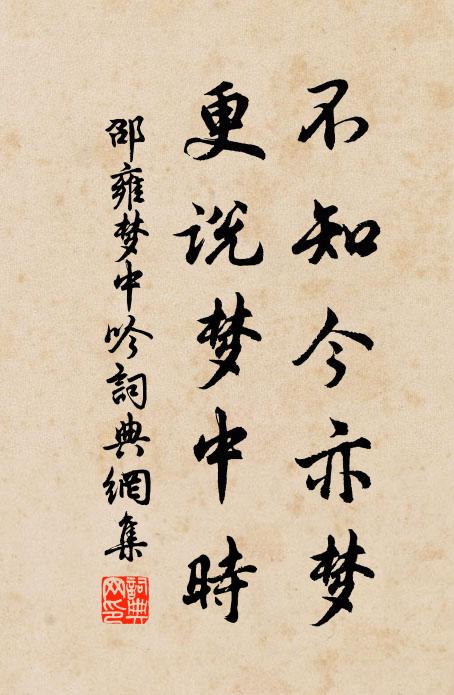 不知今亦梦
更说梦中時
邵雍梦中吟詞典網集
詞典
网印